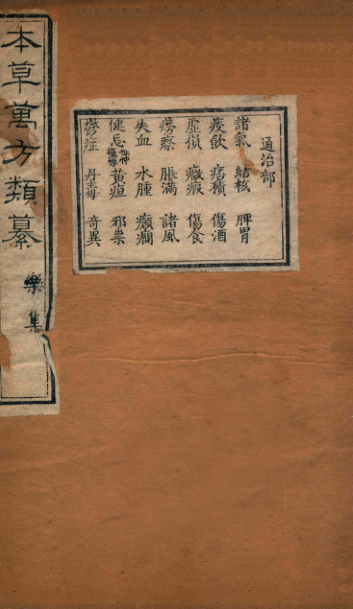 本草萬方類纂
樂集
通治部
諸氣 結核 脾胃
痰飲 痞積 傷酒
虛損 癥瘕 傷食
癆瘵 脹滿 諸風
失血 水腫 癲癇
健忘 怔忡 黃疸 邪祟
症 丹毒 奇異